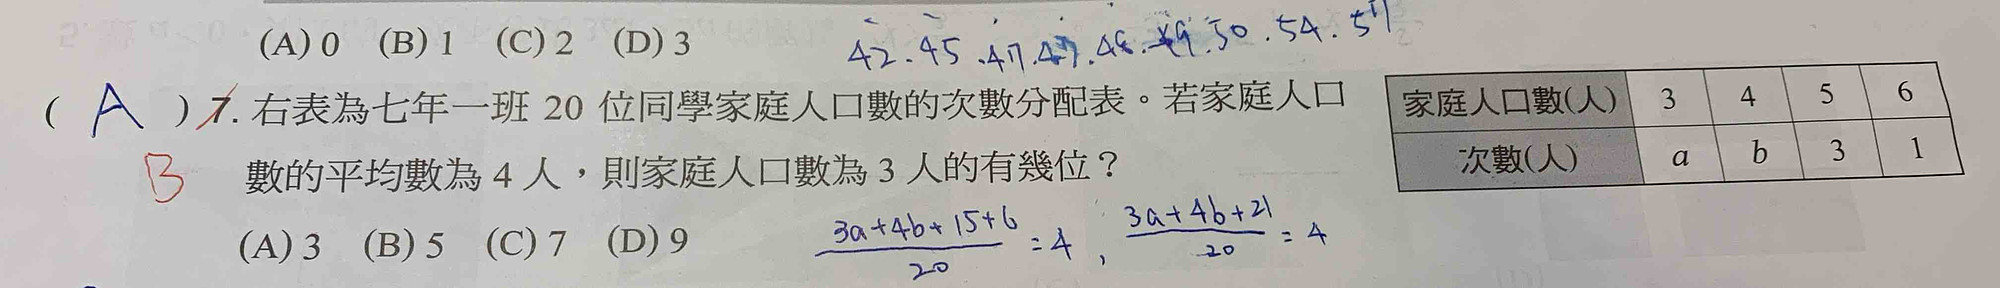 (A) 0 (B) 1 (C) 2 (D) 3
42.45.47.47.48.49.50.54.57
( A ) 7. 右表為七年一班 20 位同學家庭人口數的次數分配表。若家庭人口
B 數的平均數為 4 人，則家庭人口數為 3 人的有幾位？
家庭人口數(人) 3 4 5 6
次數(人) a b 3 1
(A) 3 (B) 5 (C) 7 (D) 9
3a+4b+15+6/20 = 4 , 3a+4b+21/20 = 4